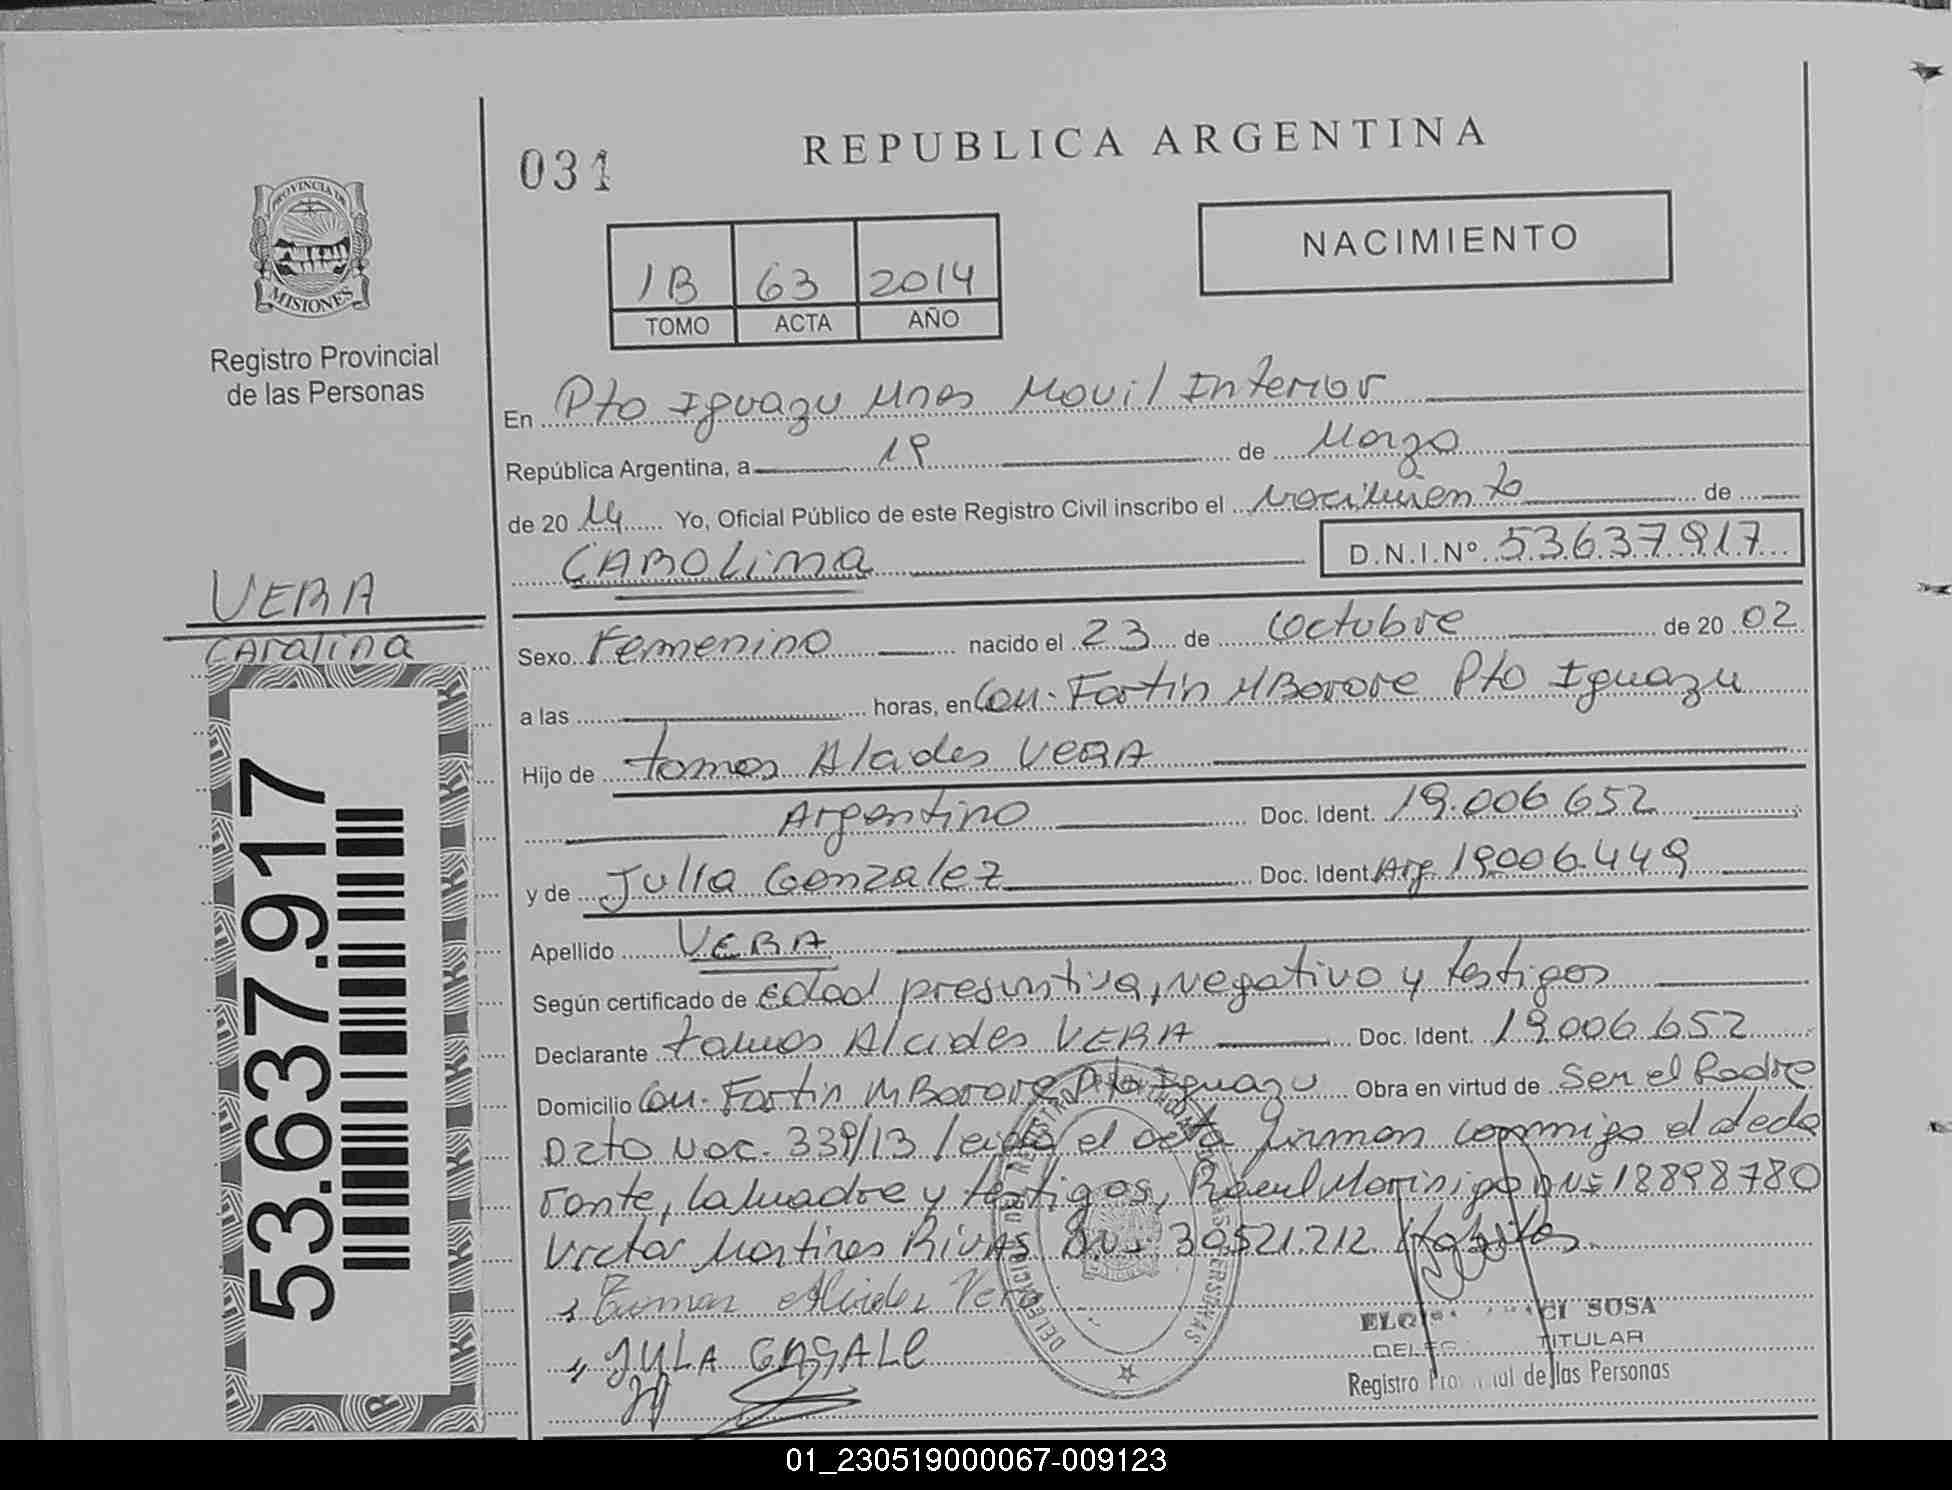 031
REPUBLICA ARGENTINA
NACIMIENTO
1B 63 2014
TOMO ACTA AÑO
PROVINCIA DE
MISIONES
Registro Provincial
de las Personas
En Pto Iguazu Mnes Movil Interior
República Argentina, a 19 de Marzo
de 20 14 Yo, Oficial Público de este Registro Civil inscribo el Nacimiento de
CAROLina
D.N.I.Nº 53637917
VERA
CArolina
Sexo Femenino nacido el 23 de Octubre de 20 02
a las horas, en Com. Fortin MBorore Pto Iguazu
Hijo de tomas Alcides VERA
Argentino Doc. Ident. 19.006.652
y de Julia Gonzalez Doc. Ident. Arg. 19.006.449
Apellido VERA
Según certificado de Edad presuntiva, negativo y testigos
Declarante tomas Alcides VERA Doc. Ident. 19.006.652
Domicilio Com. Fortin MBorore Pto Iguazu Obra en virtud de Ser el Padre
Dcto Nac. 339/13 leida el acta firman conmigo el decla
rante, la madre y testigos, Raul Morinigo DNI 18898780
Victor Martines Rivas DNI 30.521.212
Alcides Vera
JULA GASALE
SOSA
TITULAR
Registro de las Personas
53.637.917
01_230519000067-009123